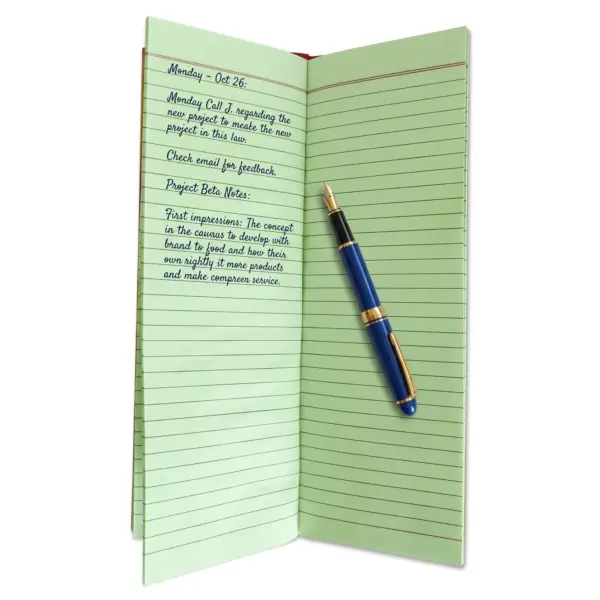 Monday - Oct 26:
Monday Call J. regarding the
new project to meake the new
project in this law.
Check email for feedback.
Project Beta Notes:
First impressions: The concept
in the caunus to develop with
brand to food and how their
own rightly it more products
and make compreen service.